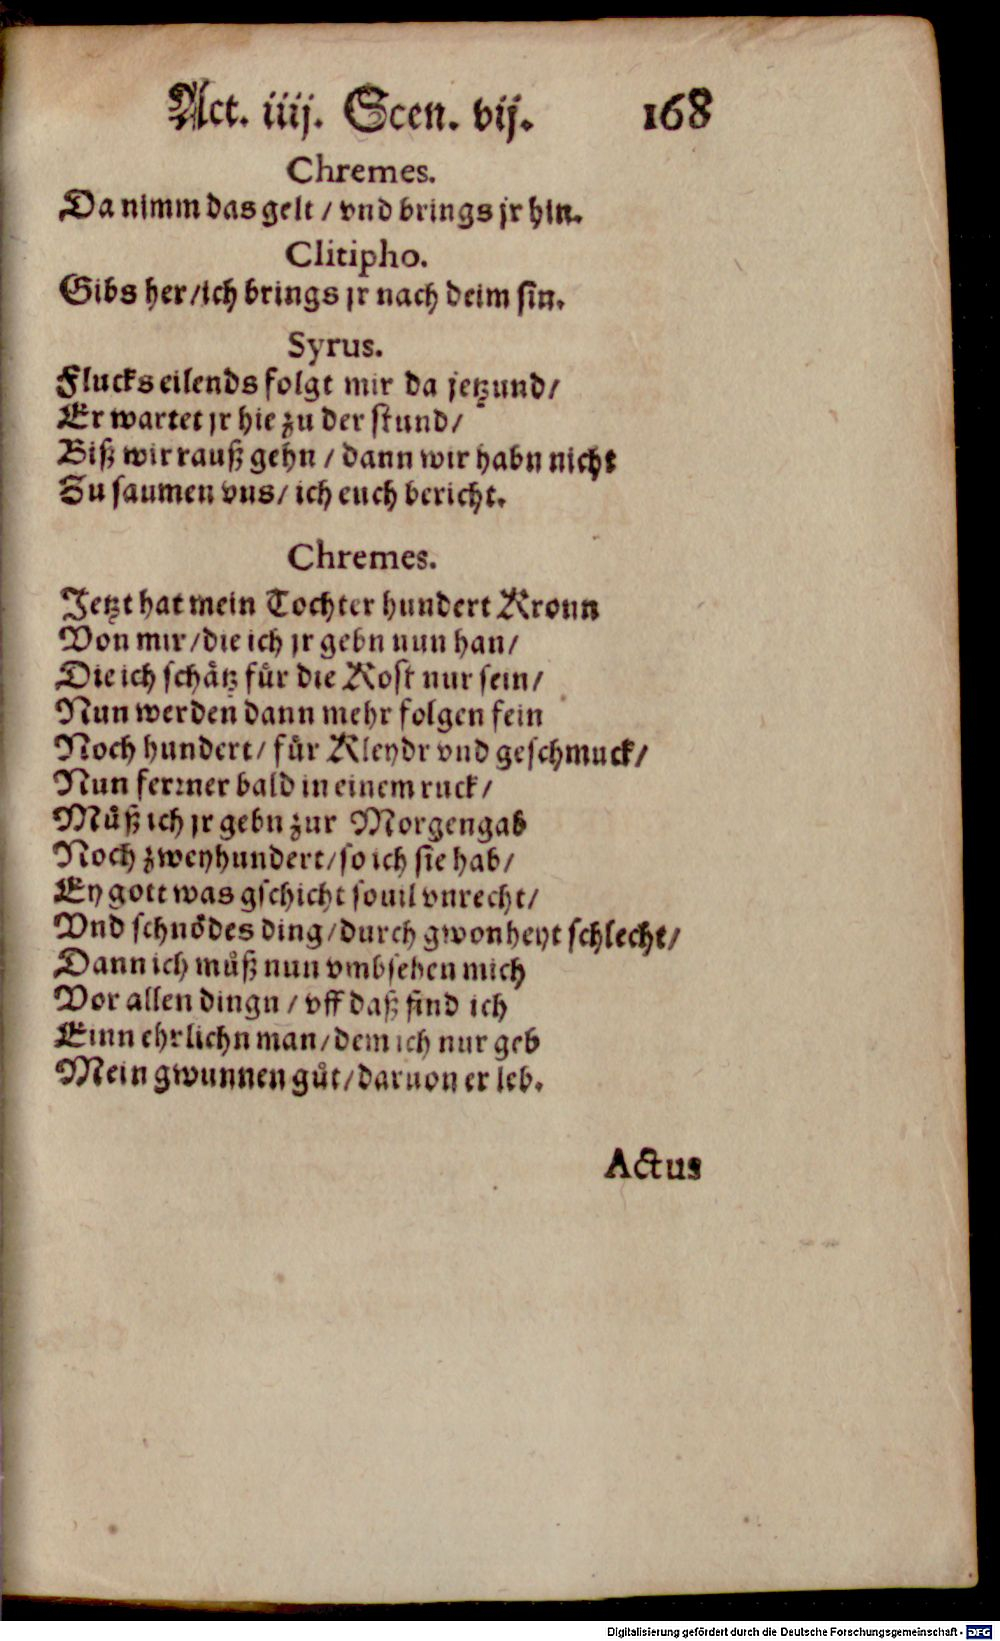 Act. iiij. Scen. vij. 168
Chremes.
Da nimm das gelt / vnd brings jr hin.
Clitipho.
Gibs her / ich brings jr nach deim sin.
Syrus.
Flucks eilends folgt mir da jetzund /
Er wartet jr hie zu der stund /
Biß wir rauß gehn / dann wir habn nicht
Zu saumen vns / ich euch bericht.
Chremes.
Jetzt hat mein Tochter hundert Kronn
Von mir / die ich jr gebn nun han /
Die ich schaͤtz fuͤr die Kost nur sein /
Nun werden dann mehr folgen fein
Noch hundert / fuͤr Kleydr vnd geschmuck /
Nun ferrner bald in einem ruck /
Muͤß ich jr gebn zur Morgengab
Noch zweyhundert / so ich sie hab /
Ey gott was gschicht souil vnrecht /
Vnd schnoͤdes ding / durch gwonheyt schlecht /
Dann ich muͤß nun vmbsehen mich
Vor allen dingn / vff daß find ich
Einn ehrlichn man / dem ich nur geb
Mein gwunnen guͤt / daruon er leb.
Actus
Digitalisierung gefördert durch die Deutsche Forschungsgemeinschaft - DFG